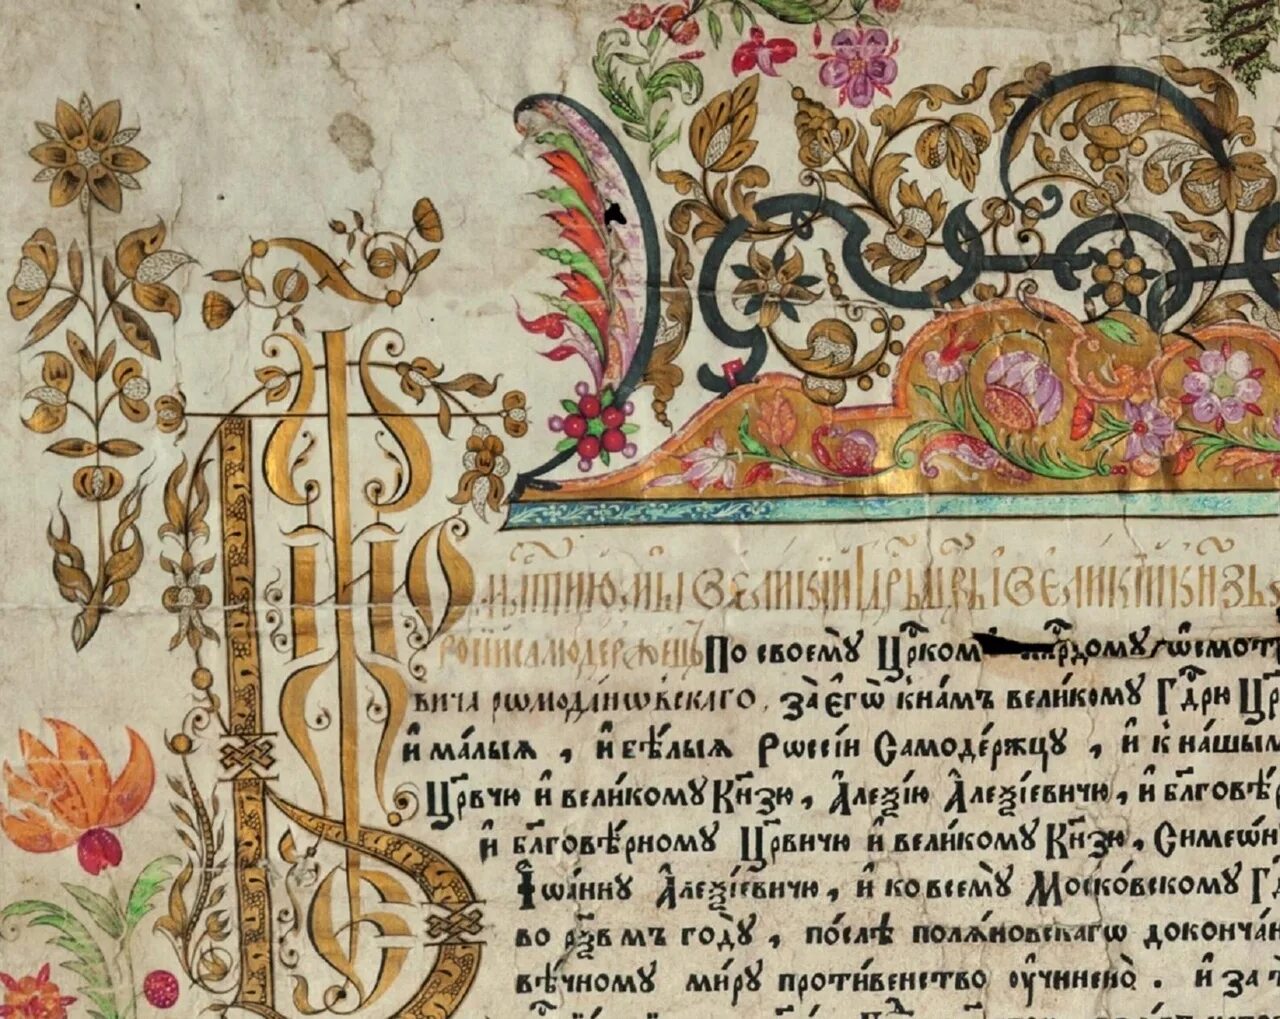 Б҃ЖИЕЮ
М҃ЛТИЮ МЫ ВЕЛИКИЙ Г҃ДРЬ Ц҃РЬ И ВЕЛИКИЙ К҃НЗЬ
РОСИИ САМОДЕРЖЕЦЪ По своемꙋ Ц҃рком ꙋ҆смот
вича рѡмодановскаго, за̀ єгѡ̀ к на́мъ великомꙋ Г҃дрю Ц҃р
и҆ ма́лыѧ, и҆ бѣ́лыѧ Рѡссі́и Самоде́ржцꙋ, и҆ к на́шым
Ц҃рвчю и҆ вели́комꙋ Кн҃зю, А҆леѯі́ю А҆леѯі́евичю, и҆ бл҃говѣ́р
и҆ бл҃говѣ́рномꙋ Ц҃рвичю и҆ вели́комꙋ Кн҃зю, Симеѡ́н
І҆ѡа́ннꙋ А҆леѯі́евичю, и҆ ко всемꙋ̀ Моско́вскомꙋ Г
во р҃ѯв мъ годꙋ̀, по́слѣ полѧ́новскагѡ доконча́н
вѣ́чномꙋ ми́рꙋ проти́венство ᲂу҆чинено̀. и҆ за